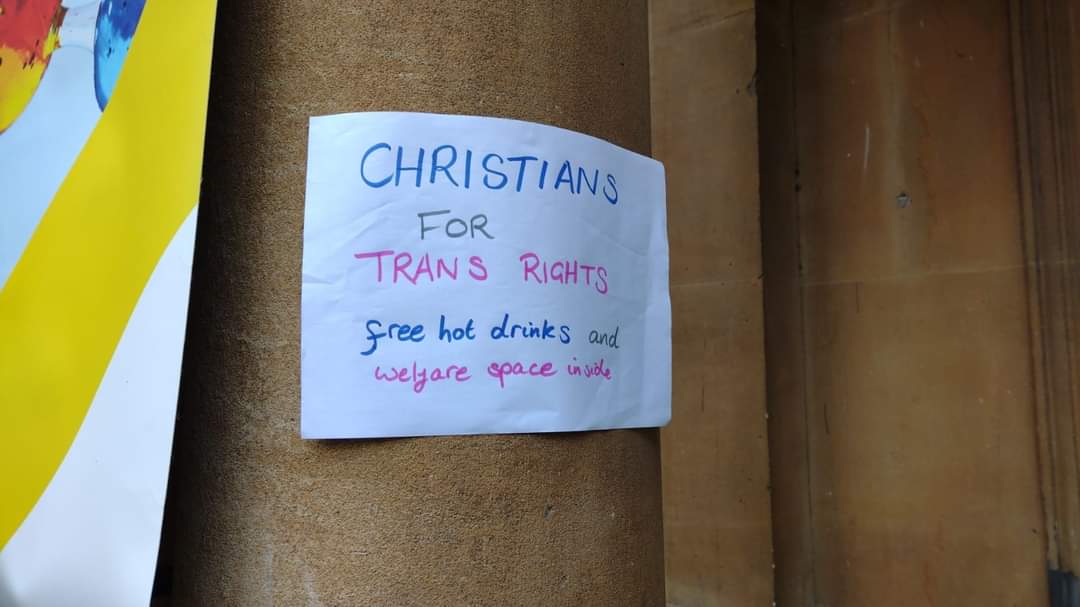 CHRISTIANS
FOR
TRANS RIGHTS
free hot drinks and
welfare space inside